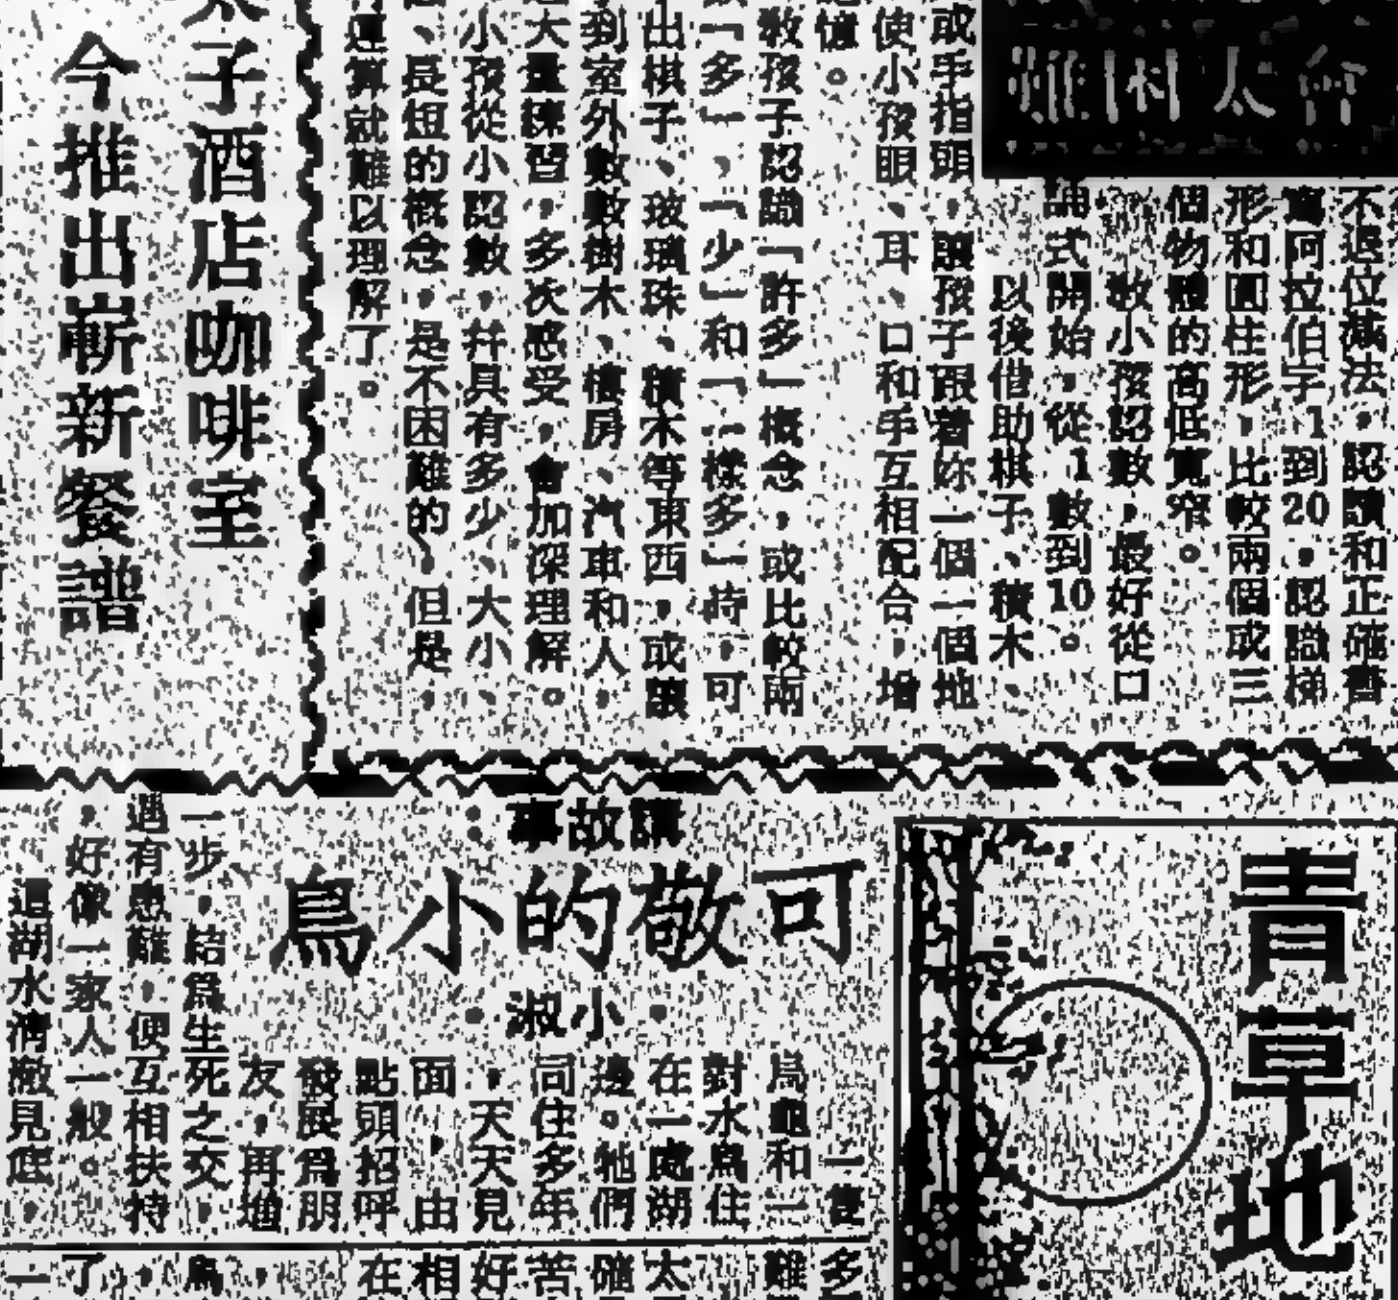 會太困難
不退位減法，認讀和正確書
寫阿拉伯字1到20，認識梯
形和圓柱形，比較兩個或三
個物體的高低寬窄。
教小孩認數，最好從口
誦式開始，從1數到10。
以後借助棋子、積木、
或手指頭，讓孩子跟着妳一個一個地
使小孩眼、耳、口和手互相配合，增
憶。
教孩子認識「許多」概念，或比較兩
「多」，「少」和「一樣多」時，可
出棋子、玻璃珠、積木等東西，或讓
到室外數數樹木、樓房、汽車和人，
大量練習，多次感受，會加深理解。
小孩從小認數，幷具有多少、大小
、長短的概念，是不困難的，但是，
運算就難以理解了。
太子酒店咖啡室
今推出嶄新餐譜
青草地
講故事：
可敬的小鳥
·小淑·
一隻
烏龜和一
對水鳥住
在一處湖
邊。牠們
同住多年
，天天見
面，由
點頭招呼
發展爲朋
友，再增
一步，結爲生死之交，
遇有患難，便互相扶持
，好像一家人一般。
這湖水清澈見底，
多
難
太
確
苦
好
相
在
鳥
，
了
一